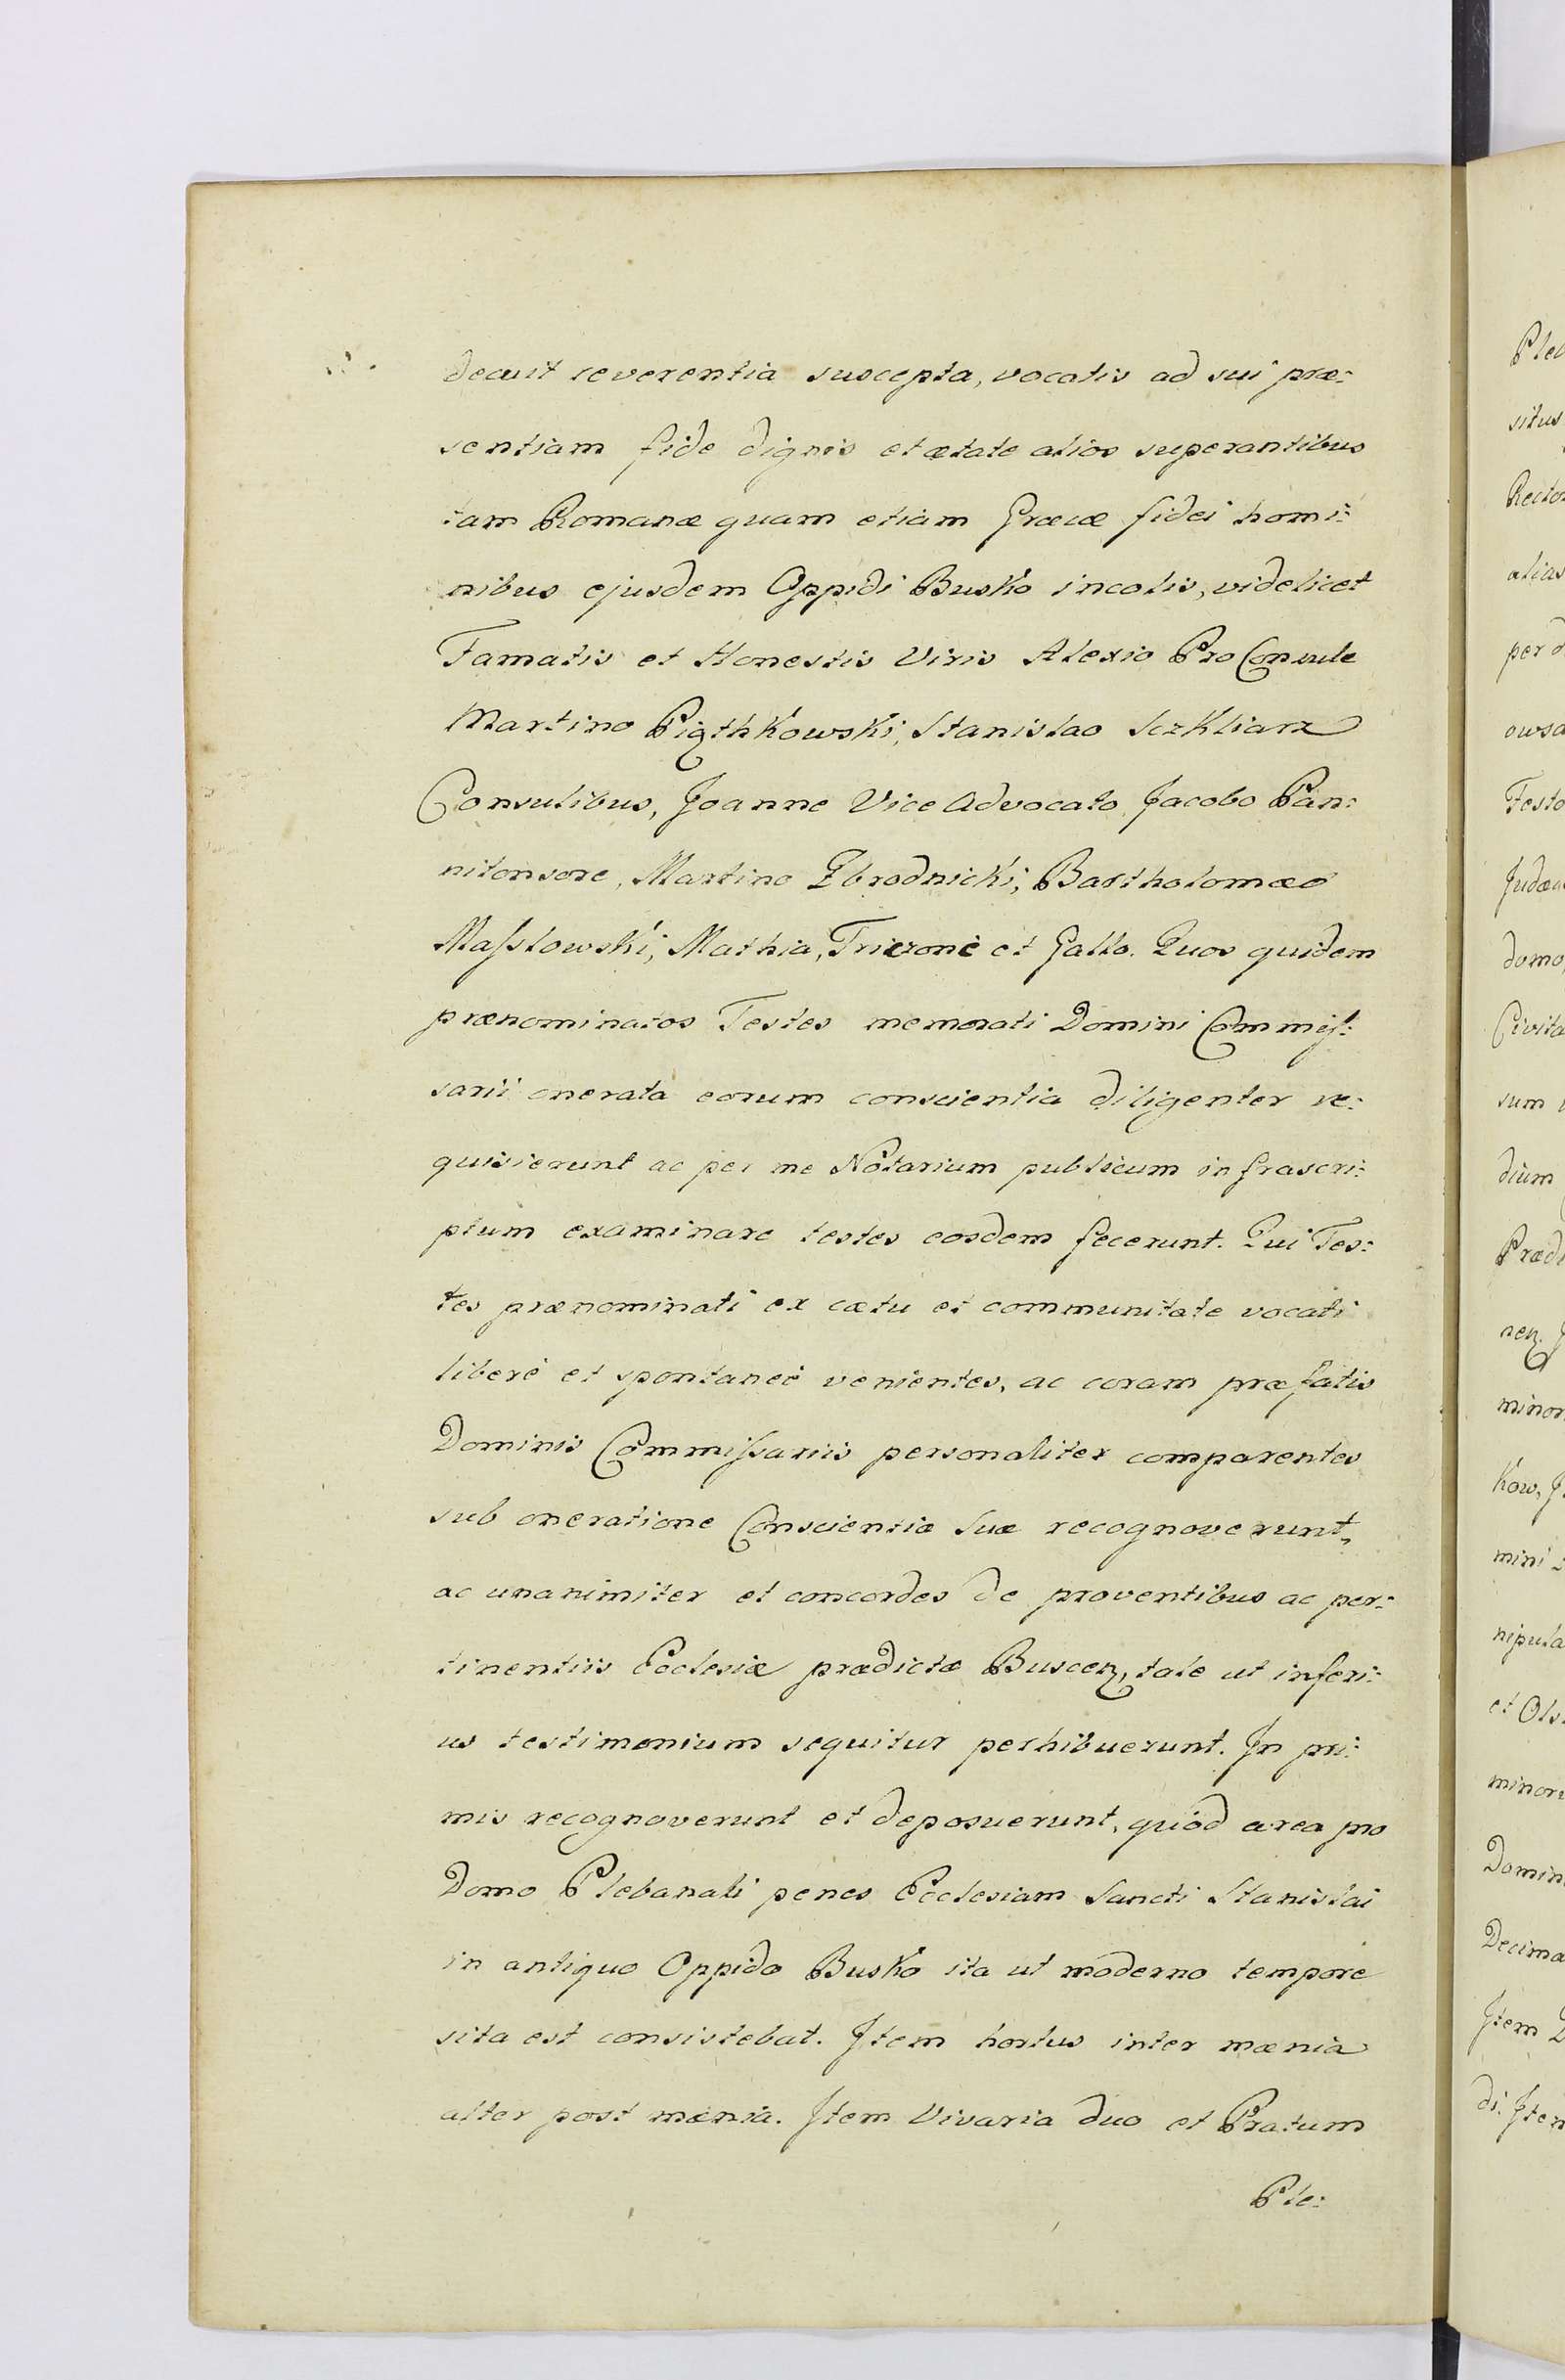 decuit reverentia suscepta, vocatis ad sui præ:
sentiam fide dignis et ætate alios superantibus
tam Romanæ quam etiam Græcæ fidei homi:
nibus ejusdem Oppidi Busko incolis, videlicet
Famatis et Honestis Viris Alexio Pro Consule
Martino Piąthkowski, Stanislao Sczkliarz
Consulibus, Joanne Vice Advocato, Jacobo Pan:
nitonsore, Martino Zbrodnicki, Bartholomæo
Maſslowski, Mathia, Triezone et Gallo. Quos quidem
prænominatos Testes memorati Domini Commiſ:
sarii onerata eorum conscientia diligenter re:
quisierunt ac per me Notarium publicum infrascri:
ptum examinare testes eosdem fecerunt. Qui Tes:
tes prænominati ex cætu et communitate vocati
liberè et spontaneè venientes, ac coram præfatis
Dominis Commiſsariis personaliter comparentes
sub oneratione Conscientiæ Suæ recognoverunt,
ac unanimiter et concordes de proventibus ac per:
tinentiis Ecclesiæ prædictæ Buscen, tale ut inferi:
us testimonium sequitur perhibuerunt. In pri:
mis recognoverunt et deposuerunt, quòd area pro
Domo Plebanali penes Ecclesiam Sancti Stanislai
in antiquo Oppido Busko ita ut moderno tempore
sita est consistebat. Item hortus inter mænia
alter post mænia. Item Vivaria duo et Pratum
Ple:
Pleb
situs
Rector
alias
per d
owsa
Festo
Judæu
domo,
Civita
sum
dium
Præd
nen.
minor
kow,
mini
nipula
et Ols
minor
Domin
Decima
Item
di. Item